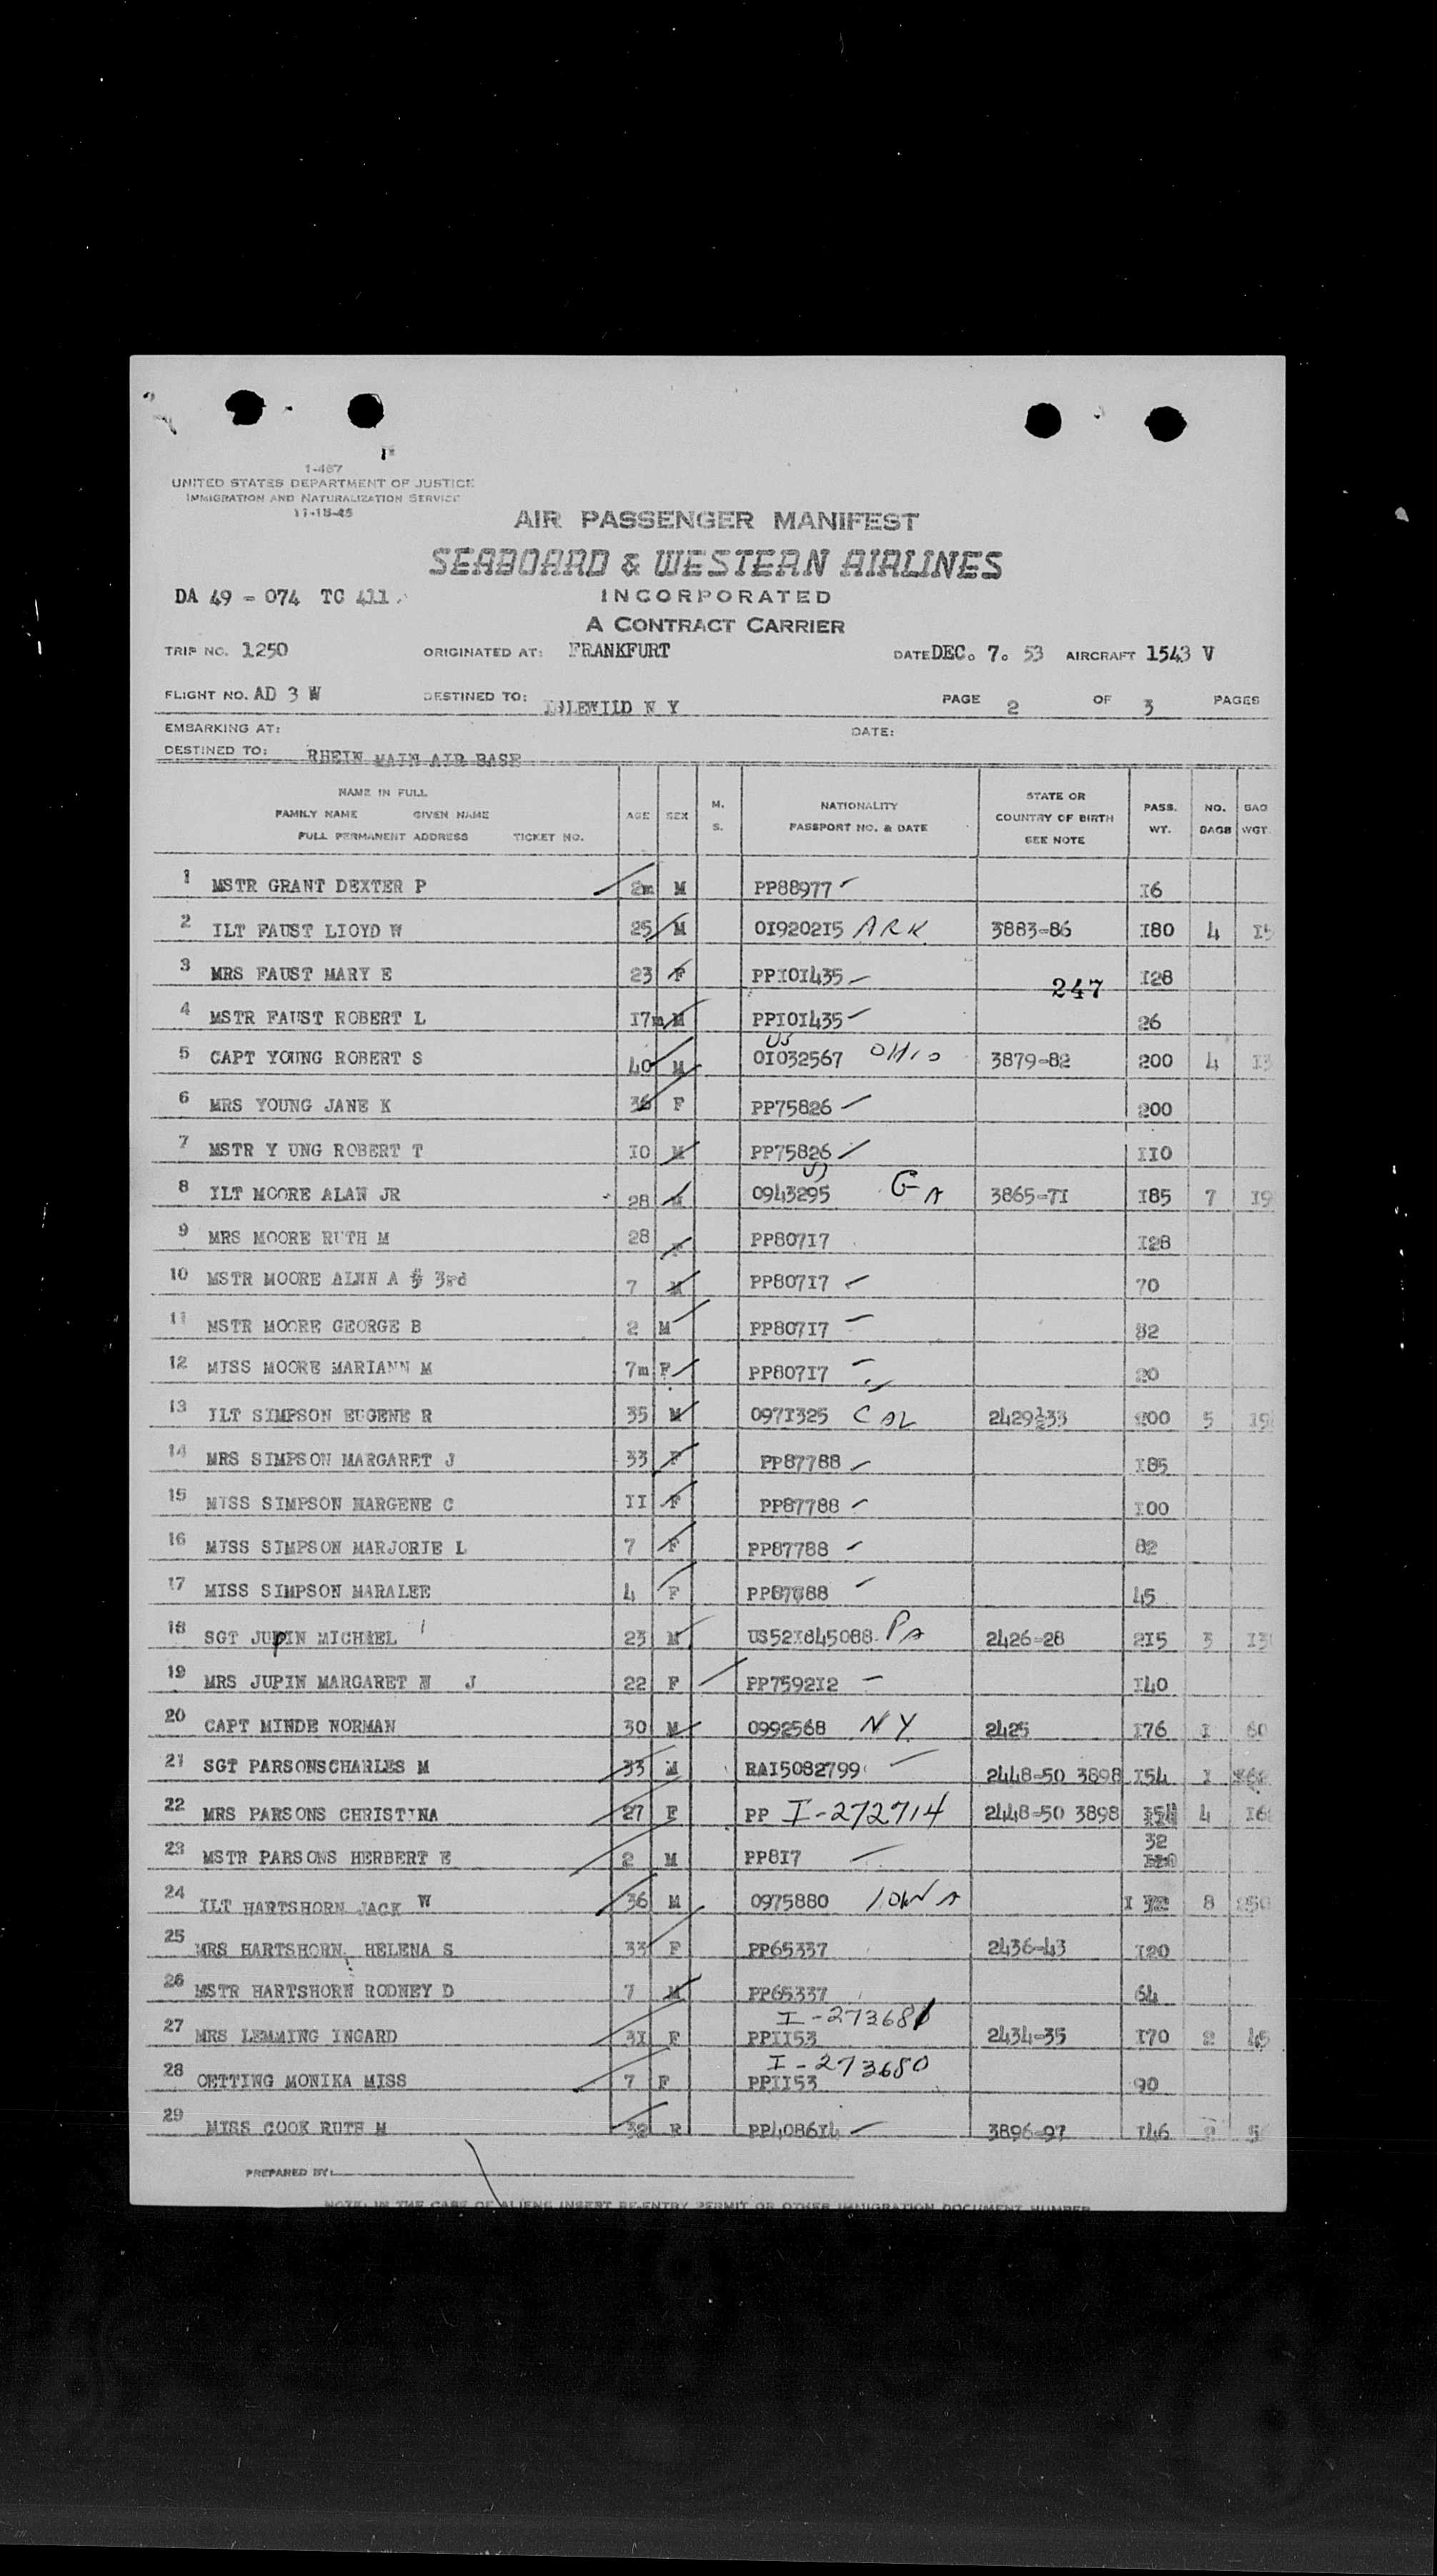 1-467
UNITED STATES DEPARTMENT OF JUSTICE
IMMIGRATION AND NATURALIZATION SERVICE
11-15-45
AIR PASSENGER MANIFEST
SEABOARD & WESTERN AIRLINES
DA 49 - 074 TC 411 INCORPORATED
A CONTRACT CARRIER
TRIP NO. 1250 ORIGINATED AT: FRANKFURT DATE DEC. 7. 53 AIRCRAFT 1543 V
FLIGHT NO. AD 3 W DESTINED TO: IDLEWILD N Y PAGE 2 OF 3 PAGES
EMBARKING AT: DATE:
DESTINED TO: RHEIN MAIN AIR BASE
NAME IN FULL
FAMILY NAME GIVEN NAME
FULL PERMANENT ADDRESS TICKET NO.
AGE SEX M. S.
NATIONALITY
PASSPORT NO. & DATE
STATE OR
COUNTRY OF BIRTH
SEE NOTE
PASS. WT.
NO. BAGS
BAG WGT.
1 MSTR GRANT DEXTER P 2m M PP88977 16
2 ILT FAUST LIOYD W 25 M 01920215 ARK 3883-86 180 4 15
3 MRS FAUST MARY E 23 F PP101435 247 128
4 MSTR FAUST ROBERT L 17m M PP101435 26
5 CAPT YOUNG ROBERT S 40 M US 01032567 OHIO 3879-82 200 4 13
6 MRS YOUNG JANE K 36 F PP75826 200
7 MSTR Y UNG ROBERT T 10 M PP75826 110
8 ILT MOORE ALAN JR 28 M US 0943295 GA 3865-71 185 7 19
9 MRS MOORE RUTH M 28 F PP80717 128
10 MSTR MOORE ALNN A 3rd 7 M PP80717 70
11 MSTR MOORE GEORGE B 2 M PP80717 32
12 MISS MOORE MARIANN M 7m F PP80717 20
13 ILT SIMPSON EUGENE R 35 M 0971325 CAL 2429½33 200 5 19
14 MRS SIMPSON MARGARET J 33 F PP87788 185
15 MISS SIMPSON MARGENE C 11 F PP87788 100
16 MISS SIMPSON MARJORIE L 7 F PP87788 82
17 MISS SIMPSON MARALEE 4 F PP87788 45
18 SGT JUPIN MICHAEL 23 M US521845088 PA 2426-28 215 3 13
19 MRS JUPIN MARGARET J 22 F PP759212 140
20 CAPT MINDE NORMAN 30 M 0992568 NY 2425 176 1 60
21 SGT PARSONSCHARLES M 33 M RA15082799 2448-50 3898 154 1
22 MRS PARSONS CHRISTINA 27 F PP I-272714 2448-50 3898 4 16
23 MSTR PARSONS HERBERT E 2 M PP817 32
24 ILT HARTSHORN JACK W 36 M 0975880 IOWA 8 250
25 MRS HARTSHORN HELENA S 33 F PP65337 2436-43 120
26 MSTR HARTSHORN RODNEY D 7 M PP65337 64
27 MRS LEMMING INGARD 31 F I-273681 PP1153 2434-35 170 2 45
28 OETTING MONIKA MISS 7 F I-273680 PP1153 90
29 MISS COOK RUTH M 32 F PP408614 3896-97 146 2 5
PREPARED BY:
NOTE: IN THE CASE OF ALIENS INSERT RE-ENTRY PERMIT OR OTHER IMMIGRATION DOCUMENT NUMBER